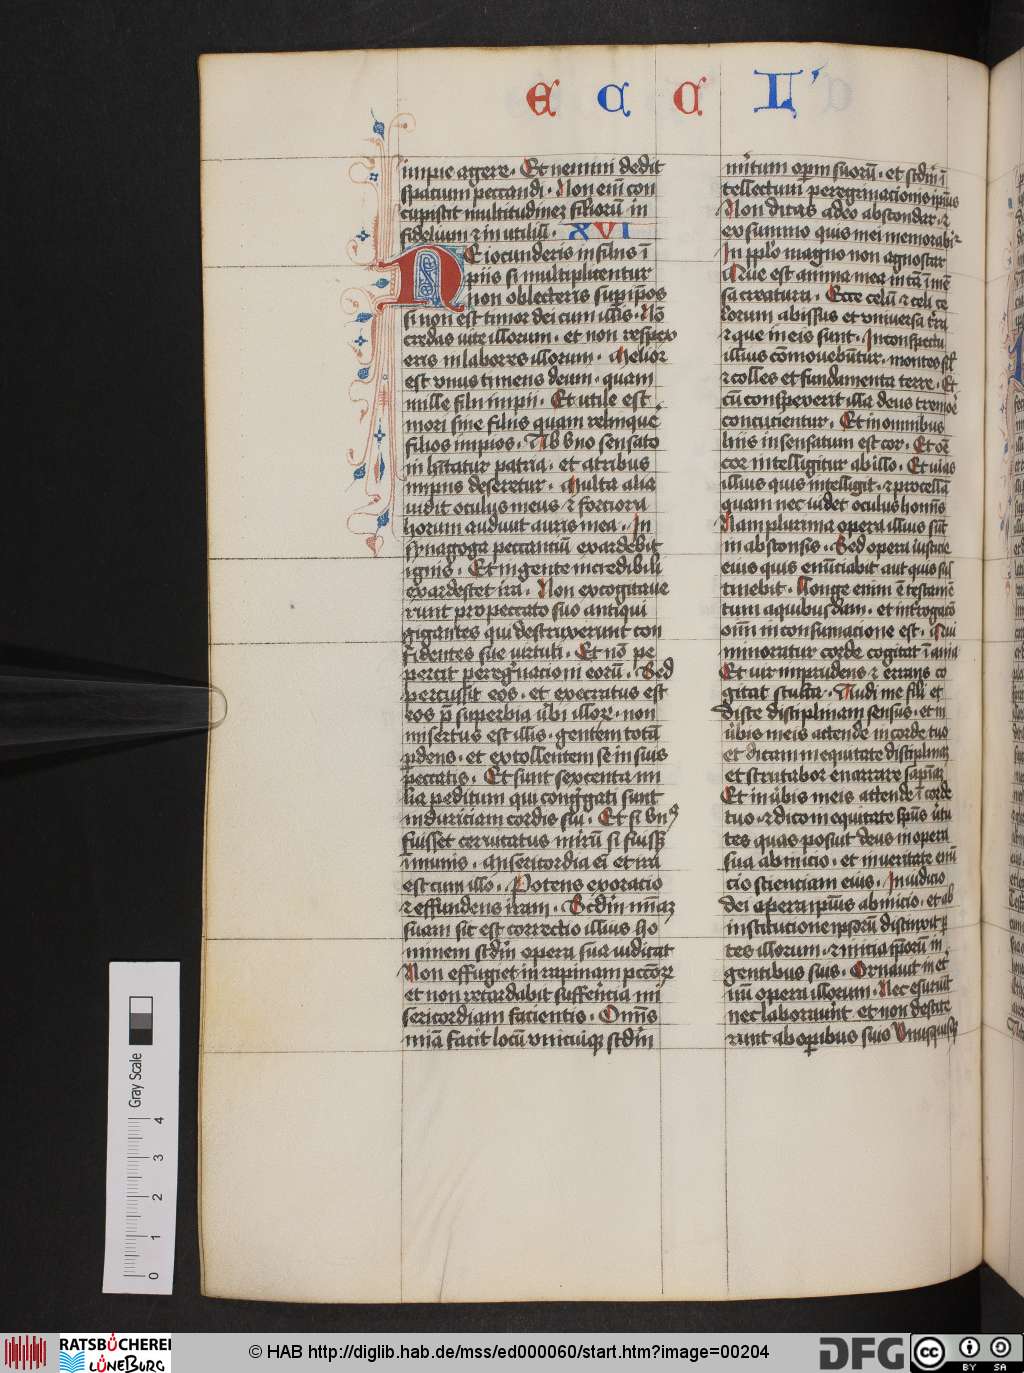 E C C Lʼ
impie agere. Et nemini dedit
spacium peccandi. Non enī con
cupiscit multitudinez filiorū in
fidelium ⁊ in utiliū. XVI
NE iocunderis in filijs ī
piis si multiplicentur
non oblecteris sup ip̄os
si non est timor dei cum illis. Nō
credas vite illorum. et non respex
eris in labores illorum. Melior
est vnus timens deum. quam
mille filii impii. Et utile est
mori sine filiis quam relinque᷒
filios impios. Ab vno sensato
in hītatur patria. et a tribus
impiis deseretur. Multa alia
uidit oculus meus ⁊ forciora
horum audiuit auris mea. In
synagoga peccanciū exardebit
ignis. Et in gente incredibili
exardescet ira. Non exorogitaue
runt pro peccato suo antiqui
gigantes qui destruxerunt con
fidentes sue virtuti. Et nō pe
percit peregͥnacioni eorū. Sed
percussit eos. et execratus est
eos p̄ superbia ūbi illorꝫ. non
misertus est illis. gentem totā
ꝑdens. et extollentem se in suis
peccatis. Et sunt sexcenta mi
lia peditum qui congͤgati sunt
in duriciam cordis sui. Et si vnꝰ
fuisset ceruicatus mirū si fuissꝫ
imunis. Misericordia ei et ira
est cum illo. Potens exoracio
⁊ effundens iram. Scd̄m mīaꝫ
suam sic est correctio illius ho
minem scd̄m opera sua iudicat
Non effugiet in rapinam pctōrꝫ
et non retardabit suffer̄cia mi
sericordiam facientis. Om̄is
mīa faciet locū vnicuiqꝫ scd̄m
m̄itum opm̄ suorū. et scd̄m ī
tellectum peregrinacionis ip̄ius
Non dicas a deo abscondar. ⁊
ex summo quis mei memorabit᷒
In pp̄lo magno non agnoscar
Que est anima mea in tā īmē
sa creatura. Ecce celū ⁊ celi ce
lorum abissus et vniuersa t̄ra
⁊ que in eis sunt. In conspectu
illius cōmouebūtur. montes sil᷒
⁊ colles et fundamenta terre. Et
cū conspexerit illa deus tremoē
concucientur. Et in omnibus
hiis insensatum est cor. Et oē
cor intelligitur ab illo. Et uias
illius quis intelligit. ⁊ procellā
quam nec uidet oculus hoīnis
Nam plurima opera illius sūt
in absconsis. Sed opera iusticie
eius quis enūciabit aut quis sus
tinebit. Longe enim ē testamē
tum a quibusdam. et interrogacō
oīm in consumacione est. Qui
minoratur corde cogitat īania
Et vir imprudens ⁊ errans co
gitat stulta. Audi me fili et
disce disciplinam sensus. et in
ūbis meis attende in corde tuo
et dicam in equitate disciplinaꝫ
et scrutabor enarrare sapīaꝫ
Et in ūbis meis attende ī corde
tuo. ⁊ dico in equitate sp̄us ūtu
tes quas posuit deus in opera
sua ab inicio. et in ueritate enū
cio scienciam eius. In iudicio
dei opera ipsius ab inicio. et ab
institucione ipsorū distinxit ꝑ
tes illorum. ⁊ inicia ip̄orū in
gentibus suis. Ornauit in et᷒
nū opera illorum. Nec esurierūt
nec laborauūt et non destite
runt ab oꝑibus suis Vnusquisqꝫ
Gray Scale
4
3
2
1
0
RATSBÜCHEREI
LÜNEBURG
© HAB http://diglib.hab.de/mss/ed000060/start.htm?image=00204
DFG
cc
BY SA